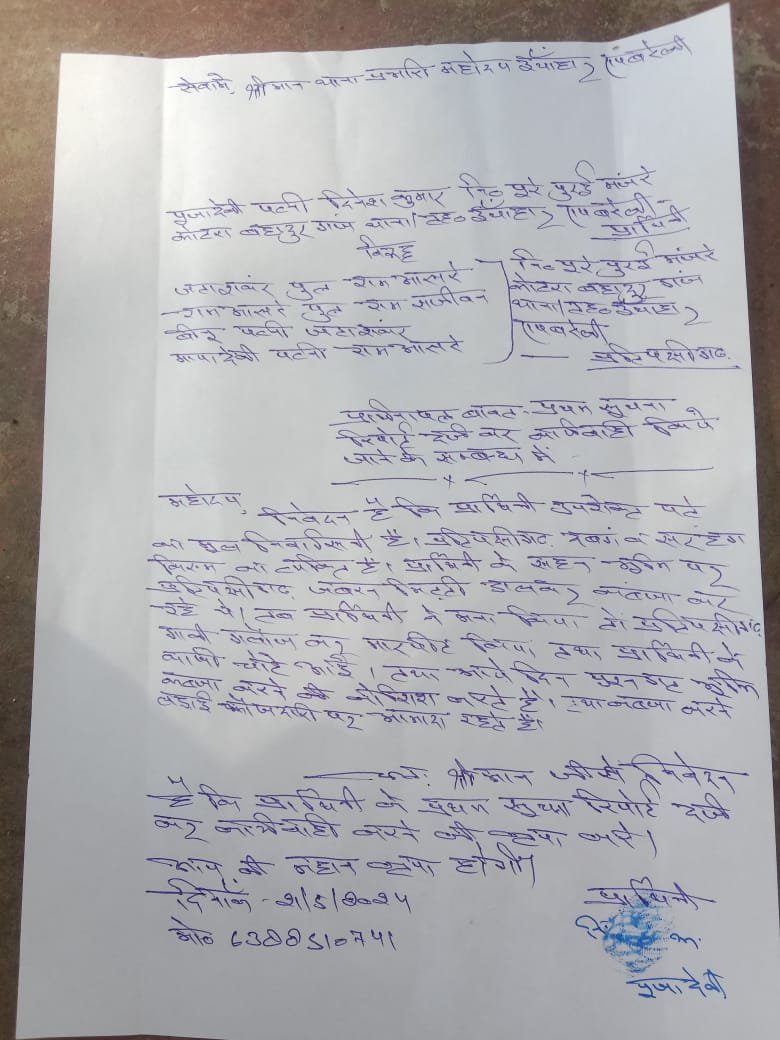 सेवामें, श्रीमान थाना प्रभारी महोदय ऊँचाहार रायबरेली
पूजा देवी पत्नी दिनेश कुमार नि० पूरे पुरई मजरे
कोटरा बहादुर गंज थाना/तह० ऊँचाहार रायबरेली -
प्रार्थिनी
विरुद्ध
जटाशंकर पुत्र राम आसरे
राम आसरे पुत्र राम सजीवन
पत्नी जटाशंकर
माया देवी पत्नी राम आसरे
नि० पूरे पुरई मजरे
कोटरा बहादुर गंज
थाना/तह० ऊँचाहार
रायबरेली
— प्रतिपक्षीगण
प्रार्थनापत्र बावत- प्रथम सूचना
रिपोर्ट दर्ज कर कार्यवाही किये
जाने के सम्बन्ध में
महोदय,
निवेदन है कि प्रार्थिनी उपरोक्त पते
का मूल निवासिनी है। प्रतिपक्षीगण दबंग व सरहंग
किस्म का व्यक्ति है। प्रार्थिनी के सहन भूमि पर
प्रतिपक्षीगण जबरन मिट्टी डालकर कब्जा कर
रहे थे। तब प्रार्थिनी ने मना किया तो प्रतिपक्षीगण
गाली गलौज कर मारपीट किया तथा प्रार्थिनी के
काफी चोटे आई। तथा आये दिन भूमि
कब्जा करने की कोशिश करते है। तथा कब्जा करने
लड़ाई फौजदारी पर आमादा रहते है।
अतः श्रीमान जी से निवेदन
है कि प्रार्थिनी के प्रथम सूचना रिपोर्ट दर्ज
कर कार्यवाही करने की कृपा करें।
आप की महान कृपा होगी।
दिनांक - 21/5/2024
मो० 6388510741
प्रार्थिनी
पूजा देवी